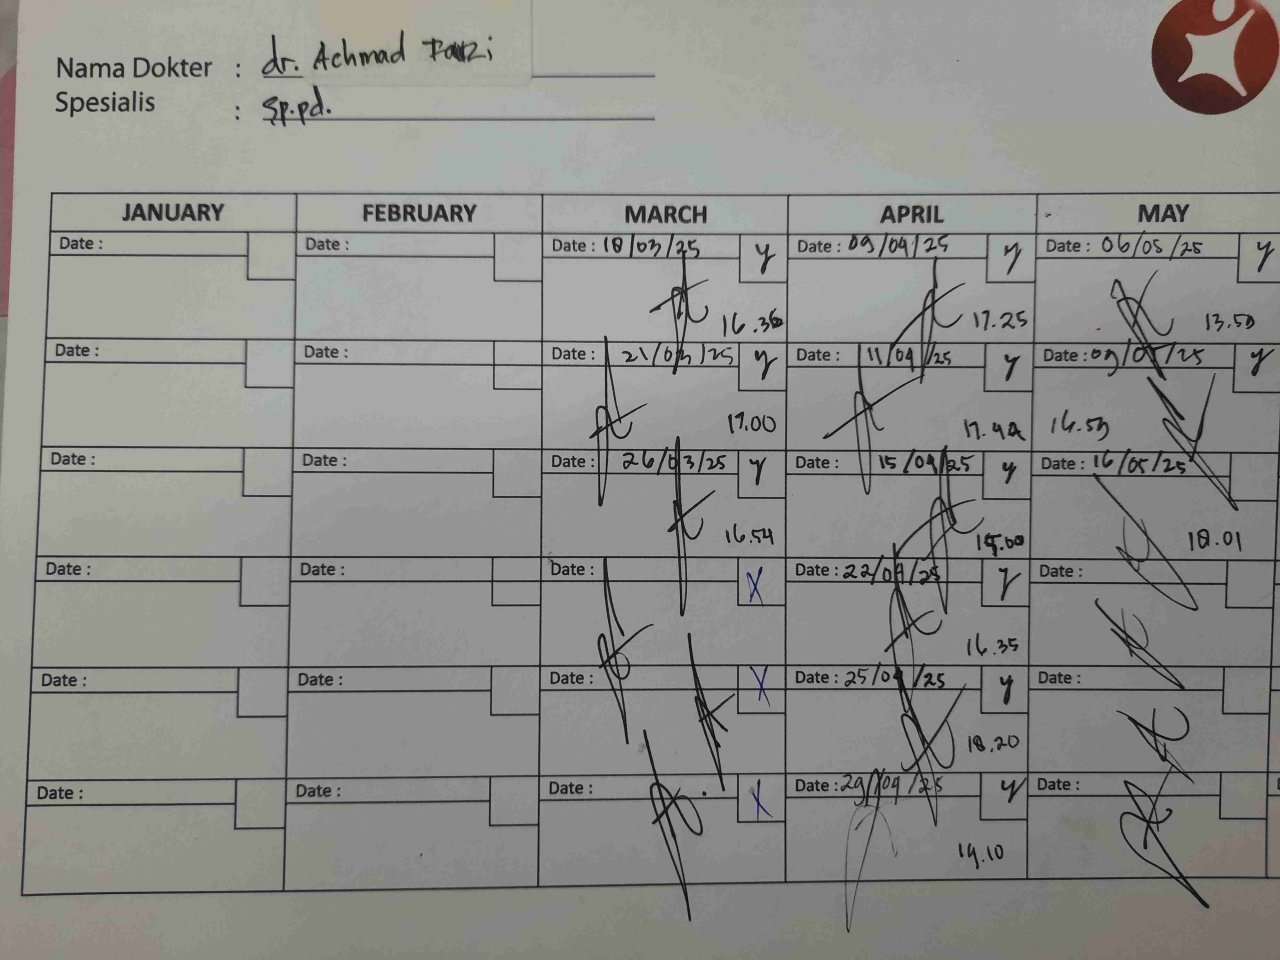 Nama Dokter : dr. Achmad Fauzi
Spesialis : Sp.pd.
JANUARY FEBRUARY MARCH APRIL MAY
Date : Date : Date : 18/03/25 y Date : 09/04/25 y Date : 06/05/25 y
16.36 17.25 13.50
Date : Date : Date : 21/03/25 y Date : 11/04/25 y Date : 09/05/25 y
17.00 17.42 16.59
Date : Date : Date : 26/03/25 y Date : 15/04/25 y Date : 16/05/25
16.54 18.01
Date : Date : Date : X Date : 22/04/25 y Date :
16.35
Date : Date : Date : X Date : 25/04/25 y Date :
18.20
Date : Date : Date : X Date : 29/04/25 y Date :
19.10